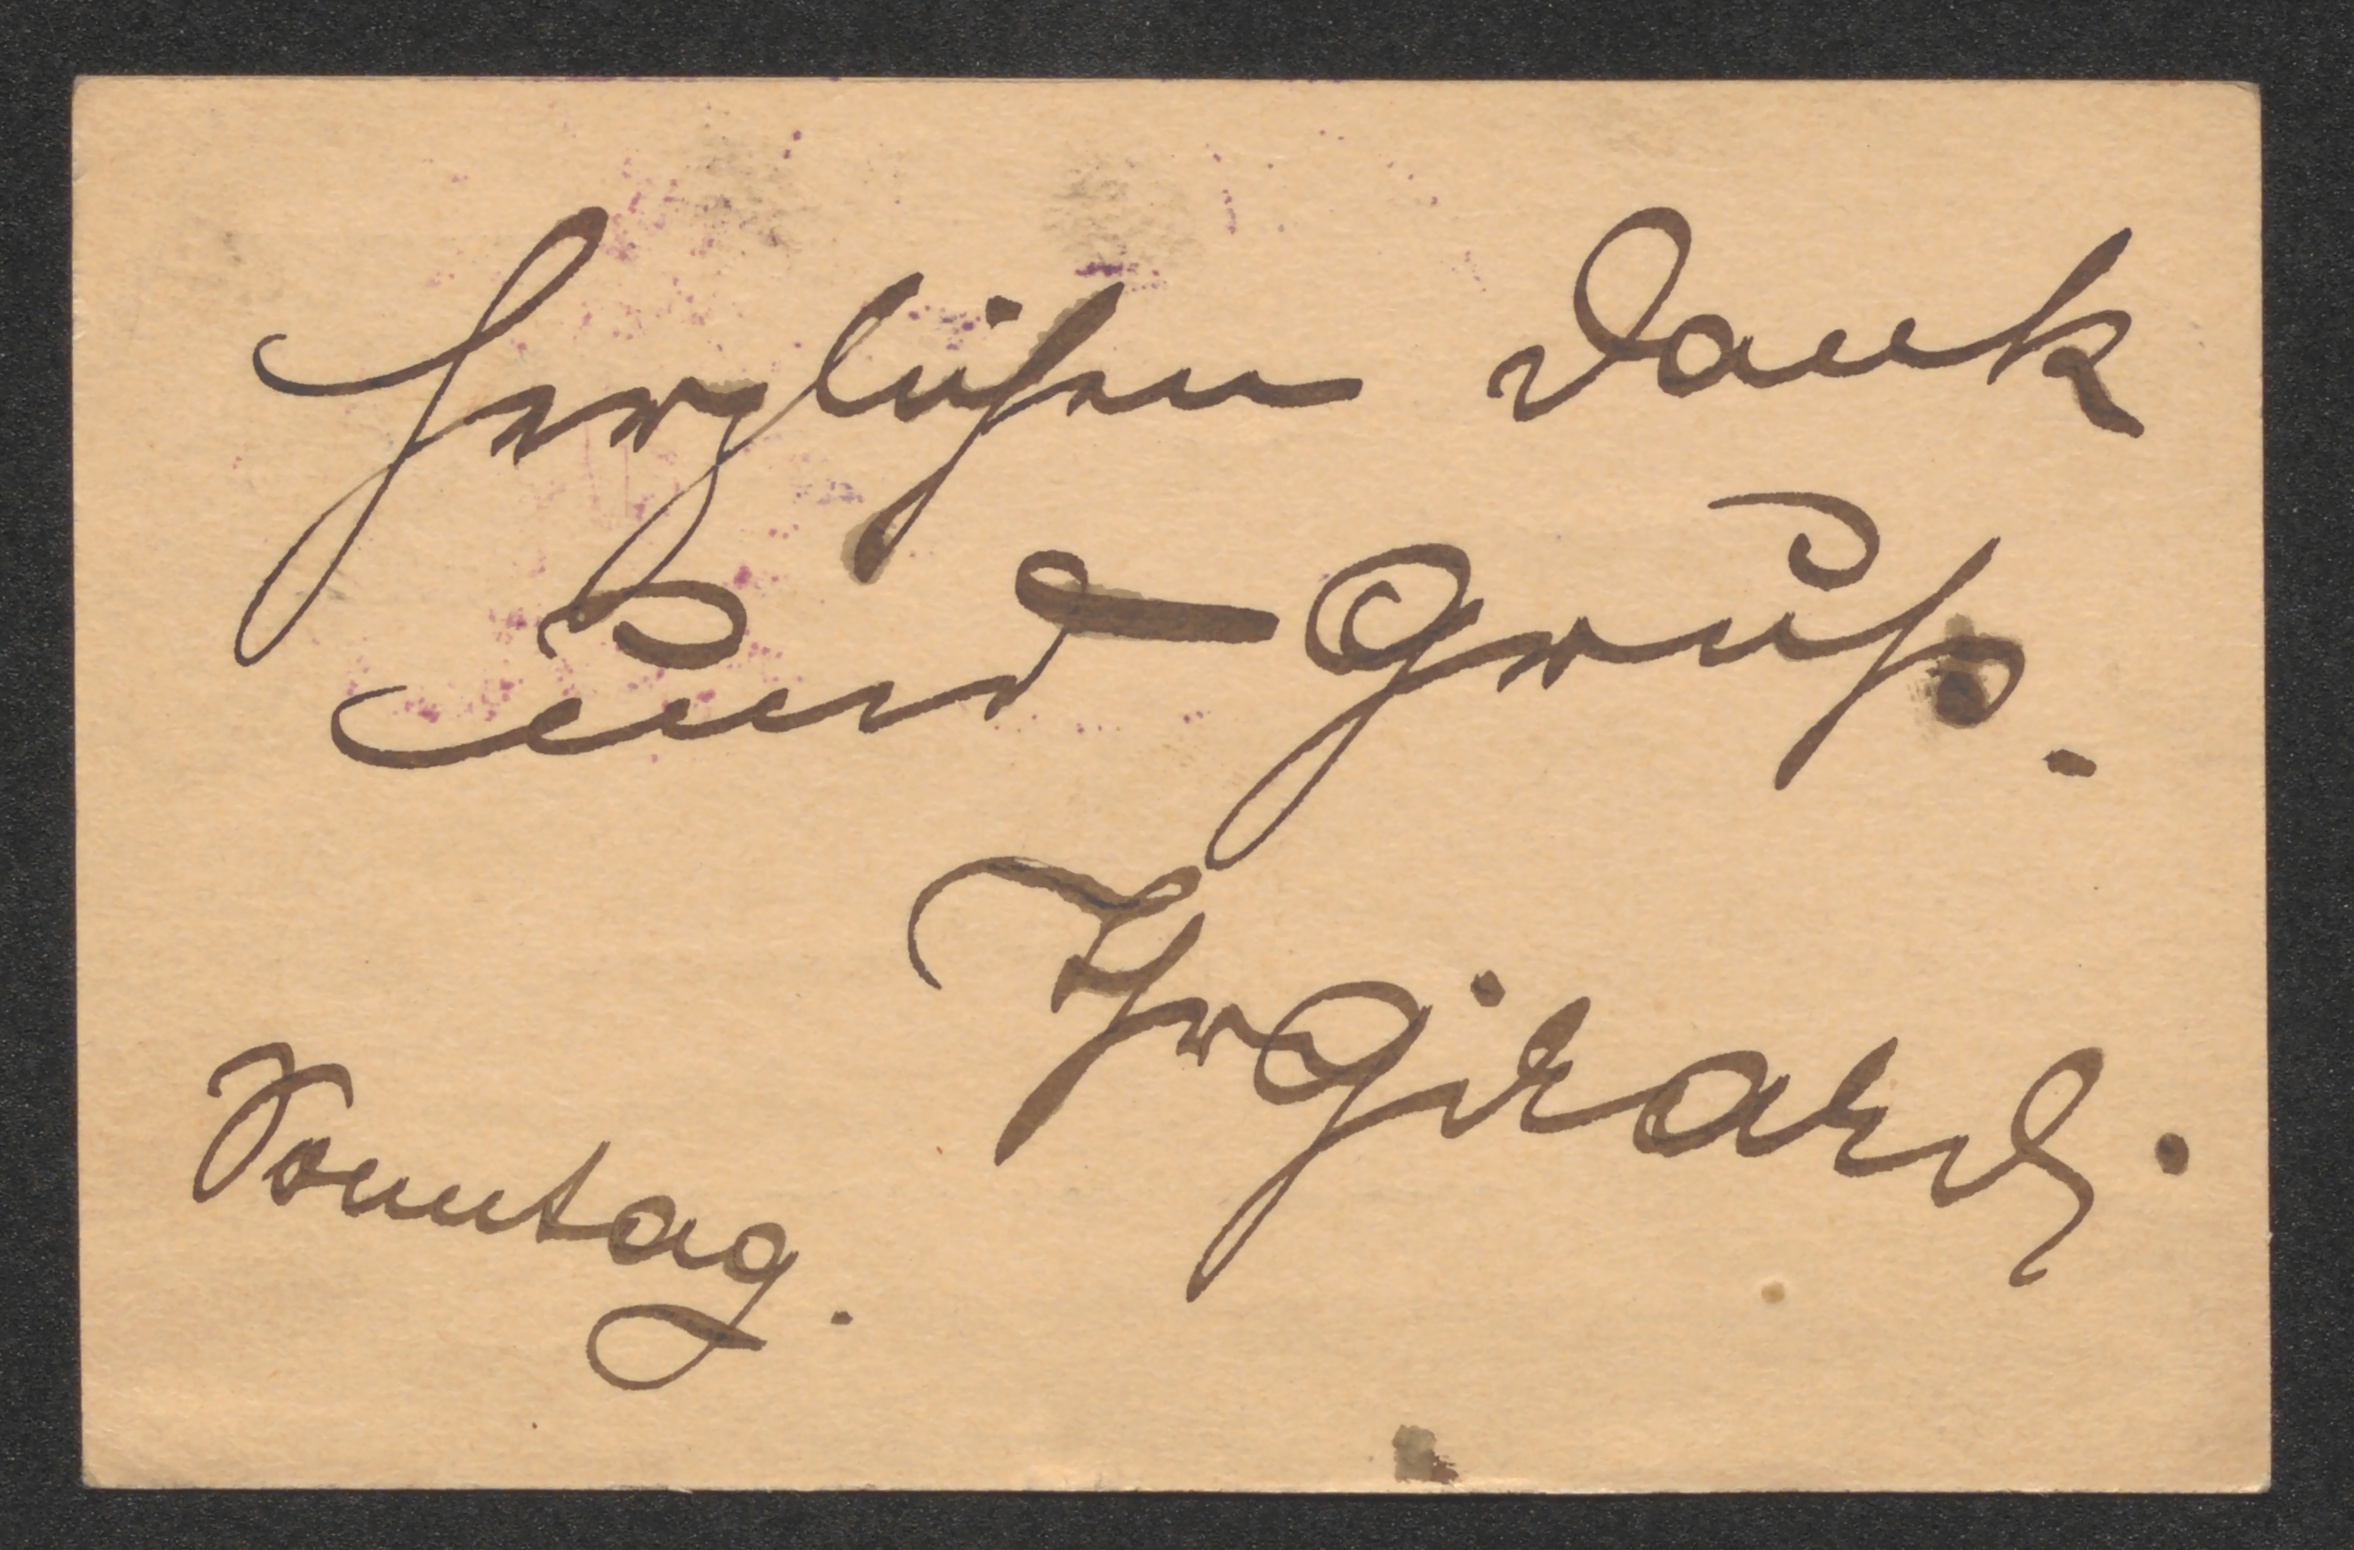 Herzlichen Dank
und Gruß.
Ihr Girardi.
Sonntag.